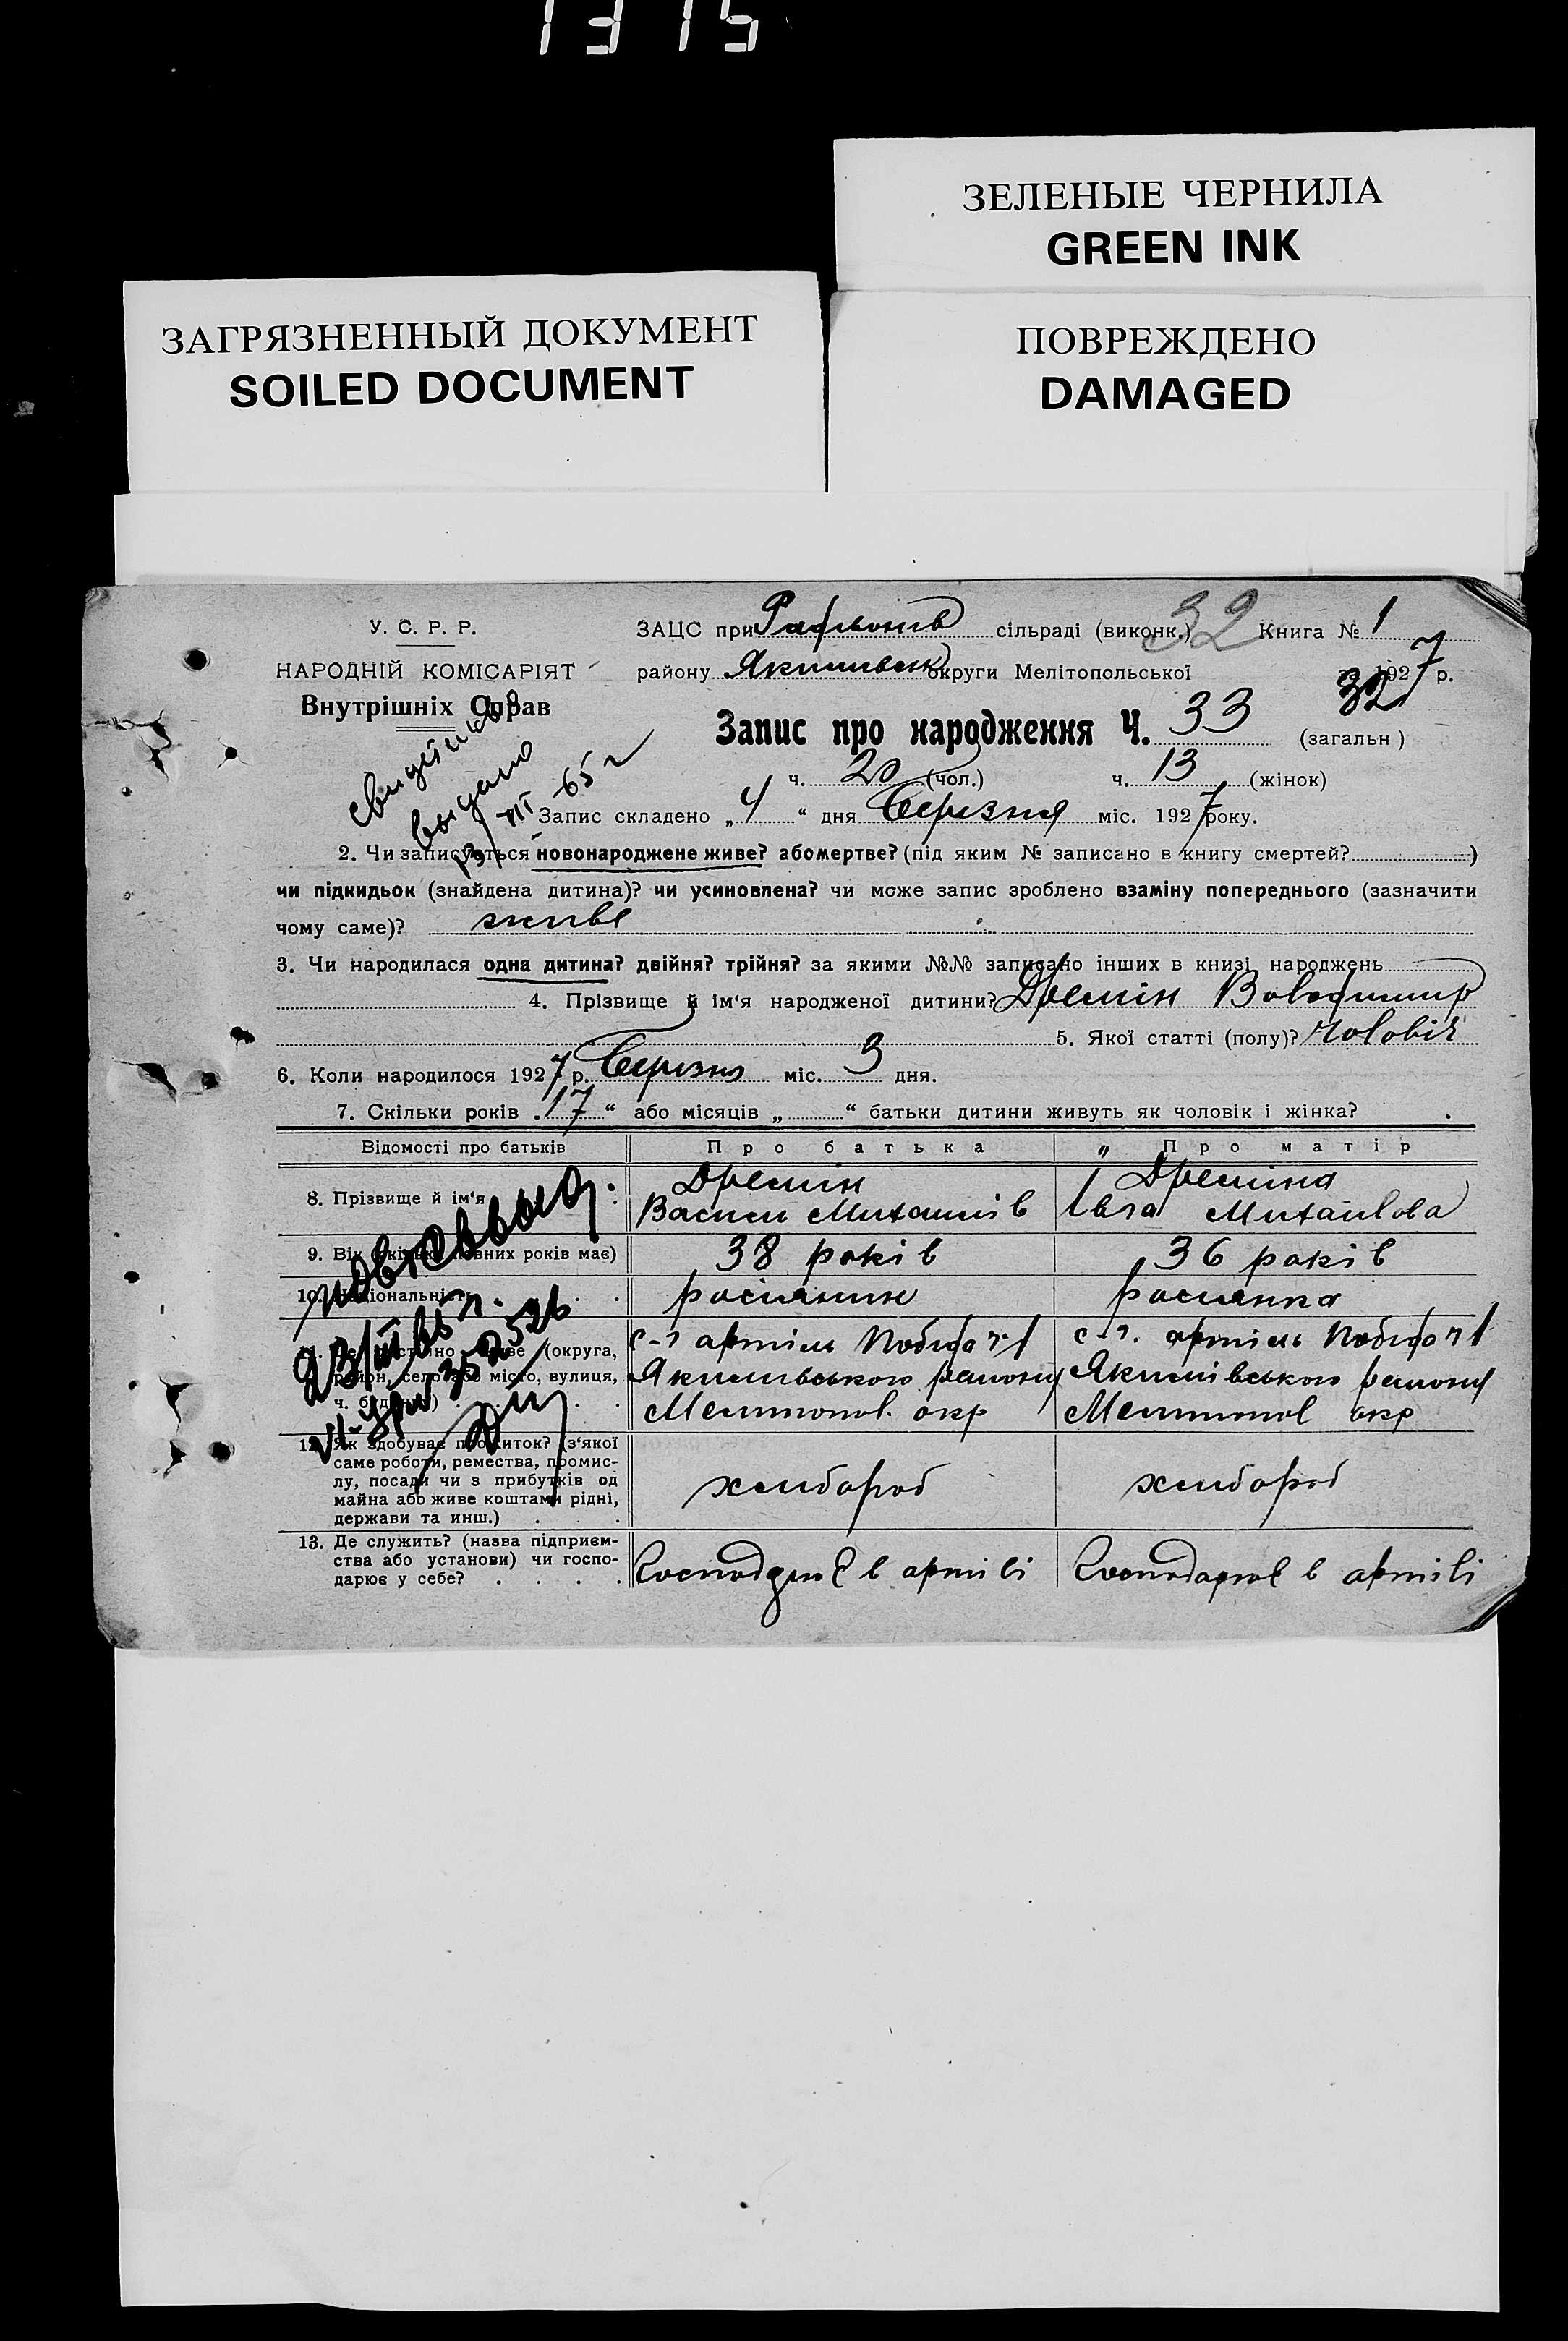 1375
ЗЕЛЕНЫЕ ЧЕРНИЛА
GREEN INK
ЗАГРЯЗНЕННЫЙ ДОКУМЕНТ
SOILED DOCUMENT
ПОВРЕЖДЕНО
DAMAGED
У. С. Р. Р.
НАРОДНІЙ КОМІСАРІЯТ
Внутрішніх Справ
ЗАЦС при сільраді (виконк.) 32 Книга № 1
району Якимівськ округи Мелітопольської 1927 р.
32
Запис про народження Ч. 33 (загальн)
ч. 20 (чол.) ч. 13 (жінок)
выдано
13/VII-65 г
Запис складено „4“ дня Березня міс. 1927 року.
2. Чи записується новонароджене живе? або мертве? (під яким № записано в книгу смертей? )
чи підкидьок (знайдена дитина)? чи усиновлена? чи може запис зроблено взаміну попереднього (зазначити
чому саме)? живе
3. Чи народилася одна дитина? двійня? трійня? за якими №№ записано інших в книзі народжень
4. Прізвище й ім‘я народженої дитини? Дремін Володимир
5. Якої статті (полу)? чоловіч
6. Коли народилося 1927 р. Березня міс. 3 дня.
7. Скільки років „17“ або місяців „ “ батьки дитини живуть як чоловік і жінка?
Відомості про батьків Про батька „ Про матір
8. Прізвище й ім‘я Дремін Дреміна
Василь Михайлів Івга Михайлова
9. Вік (скільки повних років має) 38 років 36 років
10. Національність росіянин росіянка
11. Де постійно живе (округа, район, село або місто, вулиця, ч. будинку)
с-г артіль Побєда №1 с-г. артіль Побєда №1
Якимівського району Якимівського району
Мелітопол. окр Мелітопол окр
12. Як здобуває прожиток? (з‘якої
саме роботи, ремества, промис-
лу, посади чи з прибутків од
майна або живе коштами рідні,
держави та инш.)
хлібороб хлібороб
13. Де служить? (назва підприєм-
ства або установи) чи госпо-
дарює у себе?
Господарює в артілі Господарює в артілі